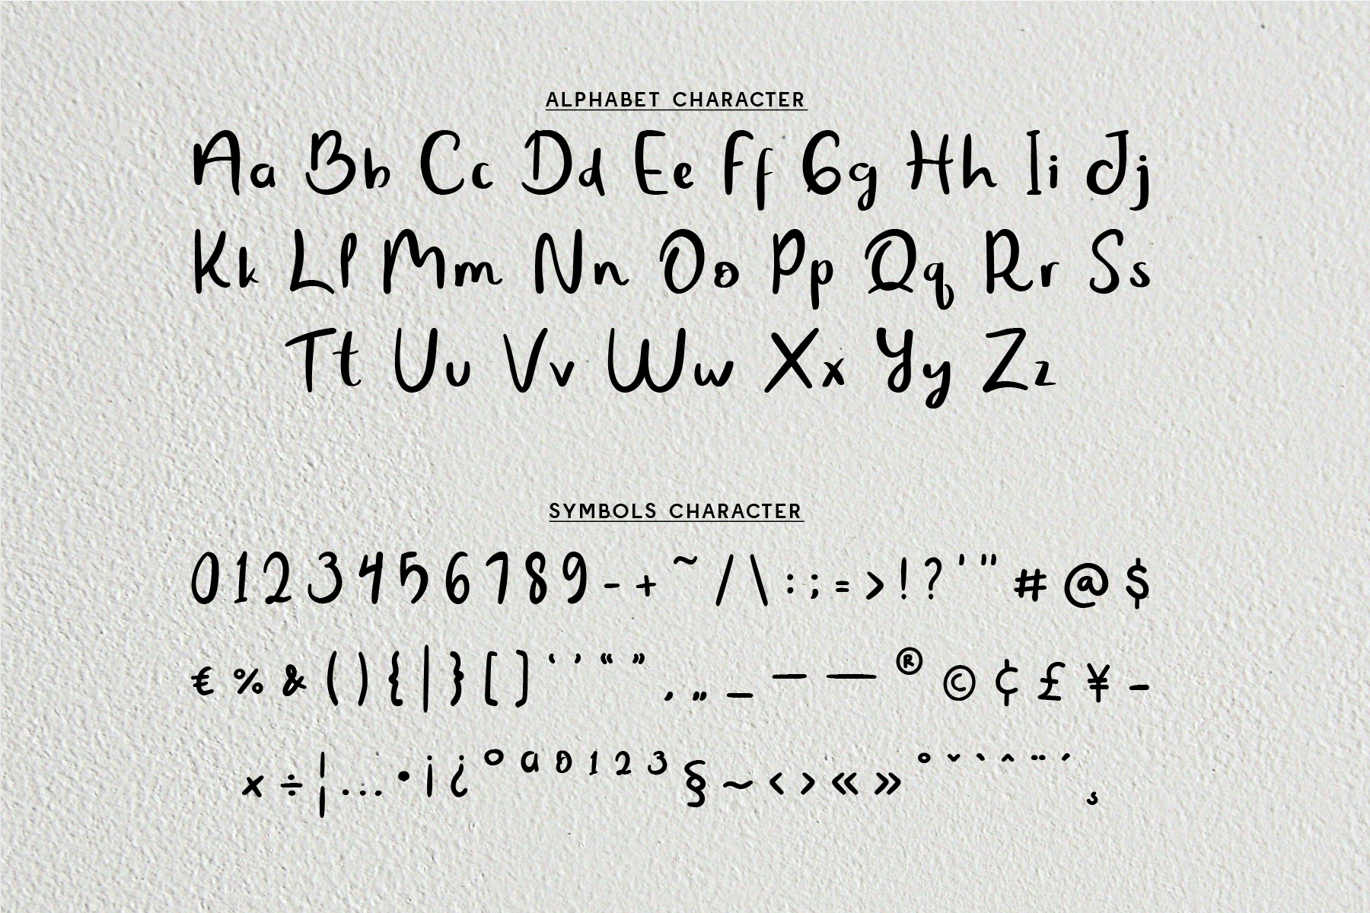 ALPHABET CHARACTER
Aa Bb Cc Dd Ee Ff Gg Hh Ii Jj
Kk Ll Mm Nn Oo Pp Qq Rr Ss
Tt Uu Vv Ww Xx Yy Zz
SYMBOLS CHARACTER
0 1 2 3 4 5 6 7 8 9 - + ~ / \ : ; = > ! ? ' " # @ $
€ % & ( ) { | } [ ] ‘ ’ “ ” ‚ „ _ – — ® © ¢ £ ¥ -
× ÷ ¦ … • ¡ ¿ º ª ⁰ ¹ ² ³ § ~ ‹ › « » ° ˇ ` ^ ¨ ´ ¸